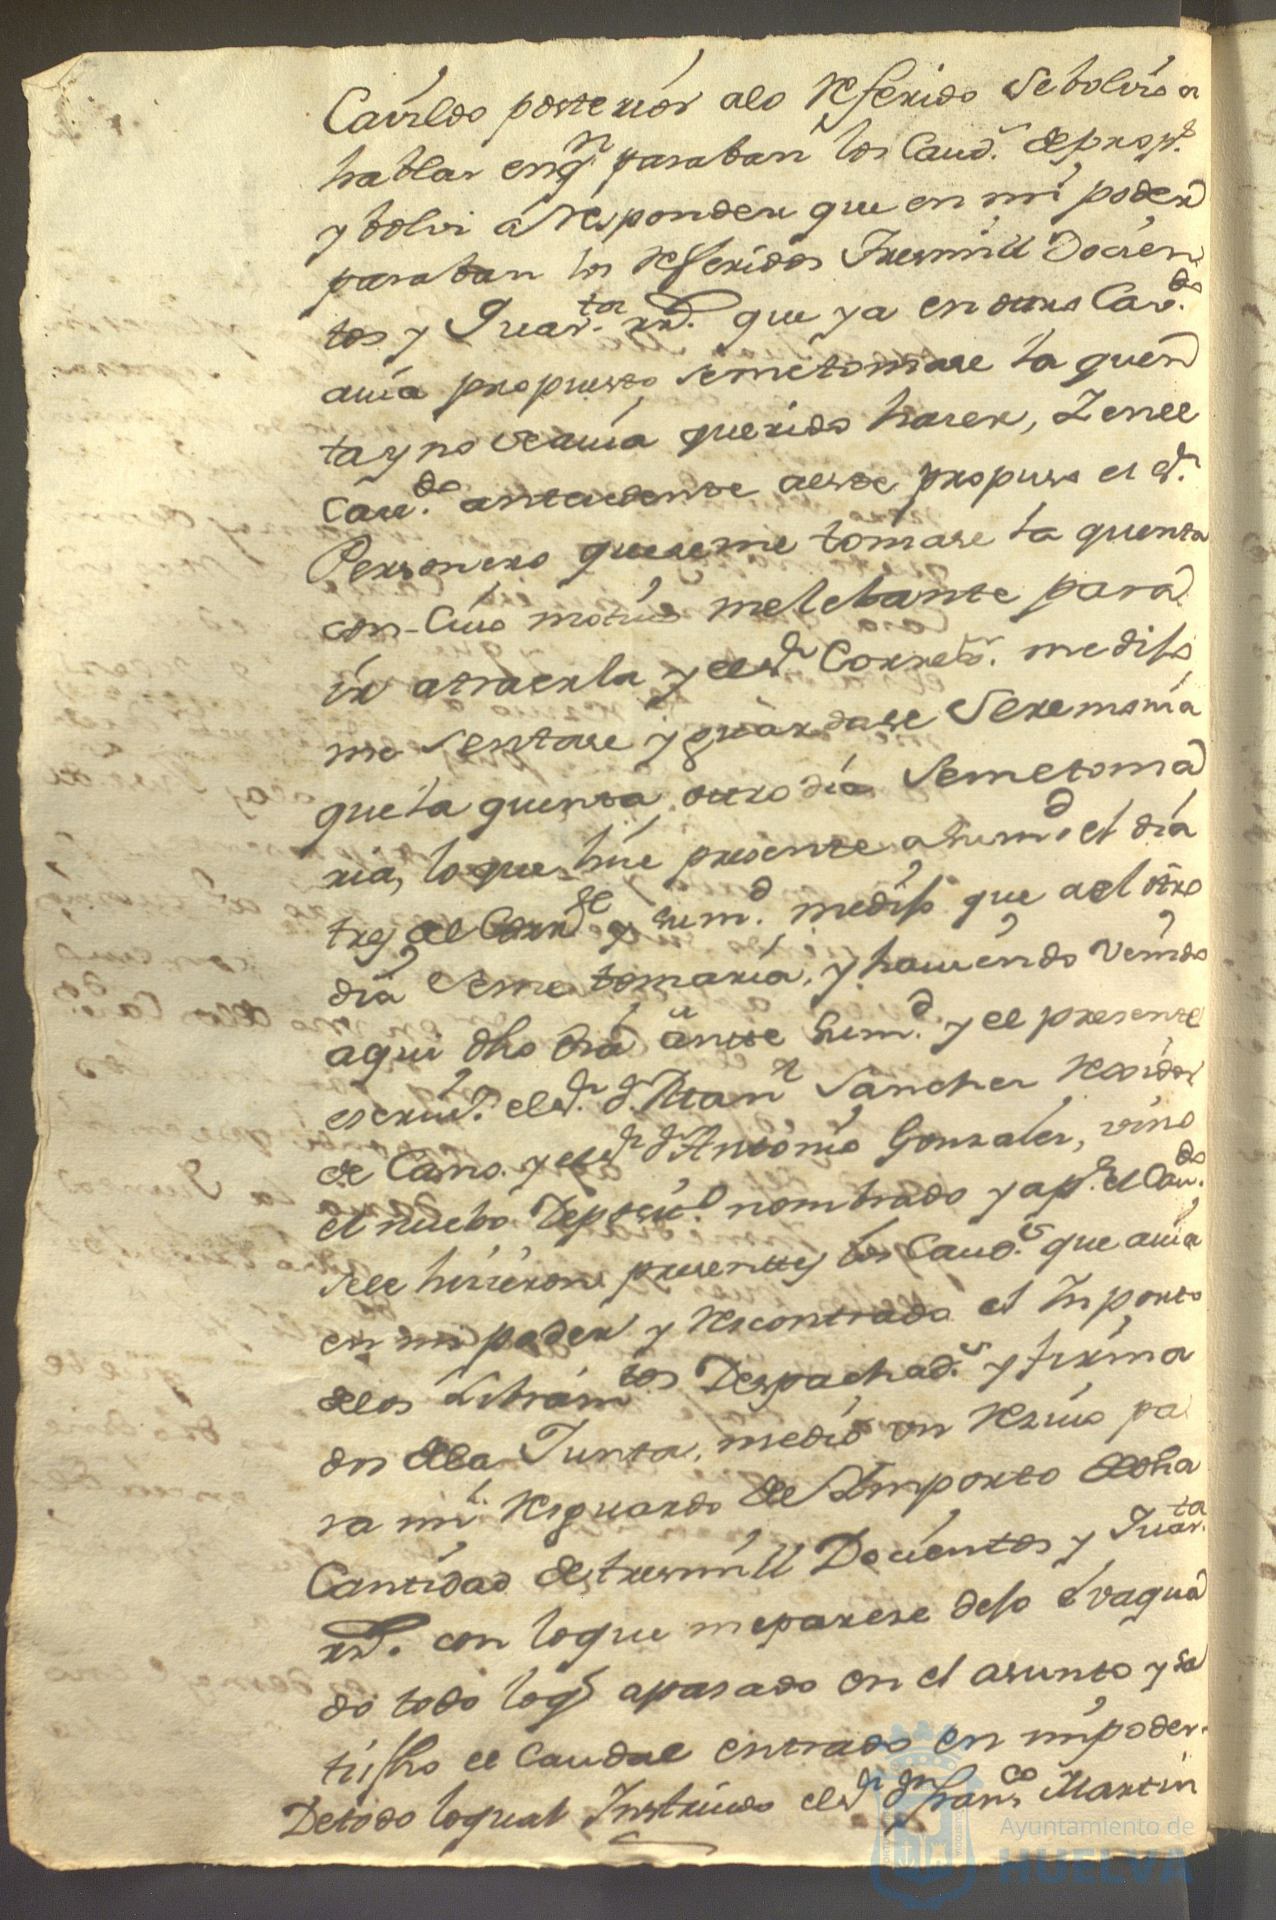 Cavildo posterior alo Referido Sebolvio a
hablar enqn paraban los Caud.s deprops.
y bolvi a Responder que en mi poder
paraban los Referidos Tresmill Docien
tos y Quar.ta rrs. que ya en otro Cav.do
avia propuesto semetomase la quen
ta y no seavia querido haser, Zenel
Cav.do antecedente aeste propuso el Sr.
Personero queseme tomase la quenta
con Cuio motivo melebante para
ir atraerla y elSr. Corretr. medijo
me Sentase y guardase Seremonia
quela quenta otro dia Semetoma
ria, lo que hise presente asumd. el dia
tres del Corrte. y sumd. medijo queael otro
dia Seme tomaria, y haviendo Venido
aqui dho dia ante Sumd. y el presente
escriv.o elSr. Dn. Juan Sanchez Rexidor
de Cano. y elSr. Dn. Antonio Gonzales, vino
el nuebo Deposit.o nombrado y ap.r el Cav.do
sele hisieron presentes los Caud.s que avia
en mi poder y Recontrado el Inporte
delos Libram.tos Despachad.s y firma
dos dela Junta, medio un Resivo pa
ra mi Resguardo del Importo dedha
Cantidad detresmill Docientos y Quar.ta
rrs. con loque meparese dejo evaqua
do todo loq apasado en el asunto y sa
tisfho el Caudal entrado en mipoder.
Detodo loqual Instruido elSr. Dn. Fran.co Martin
Ayuntamiento de
HUELVA